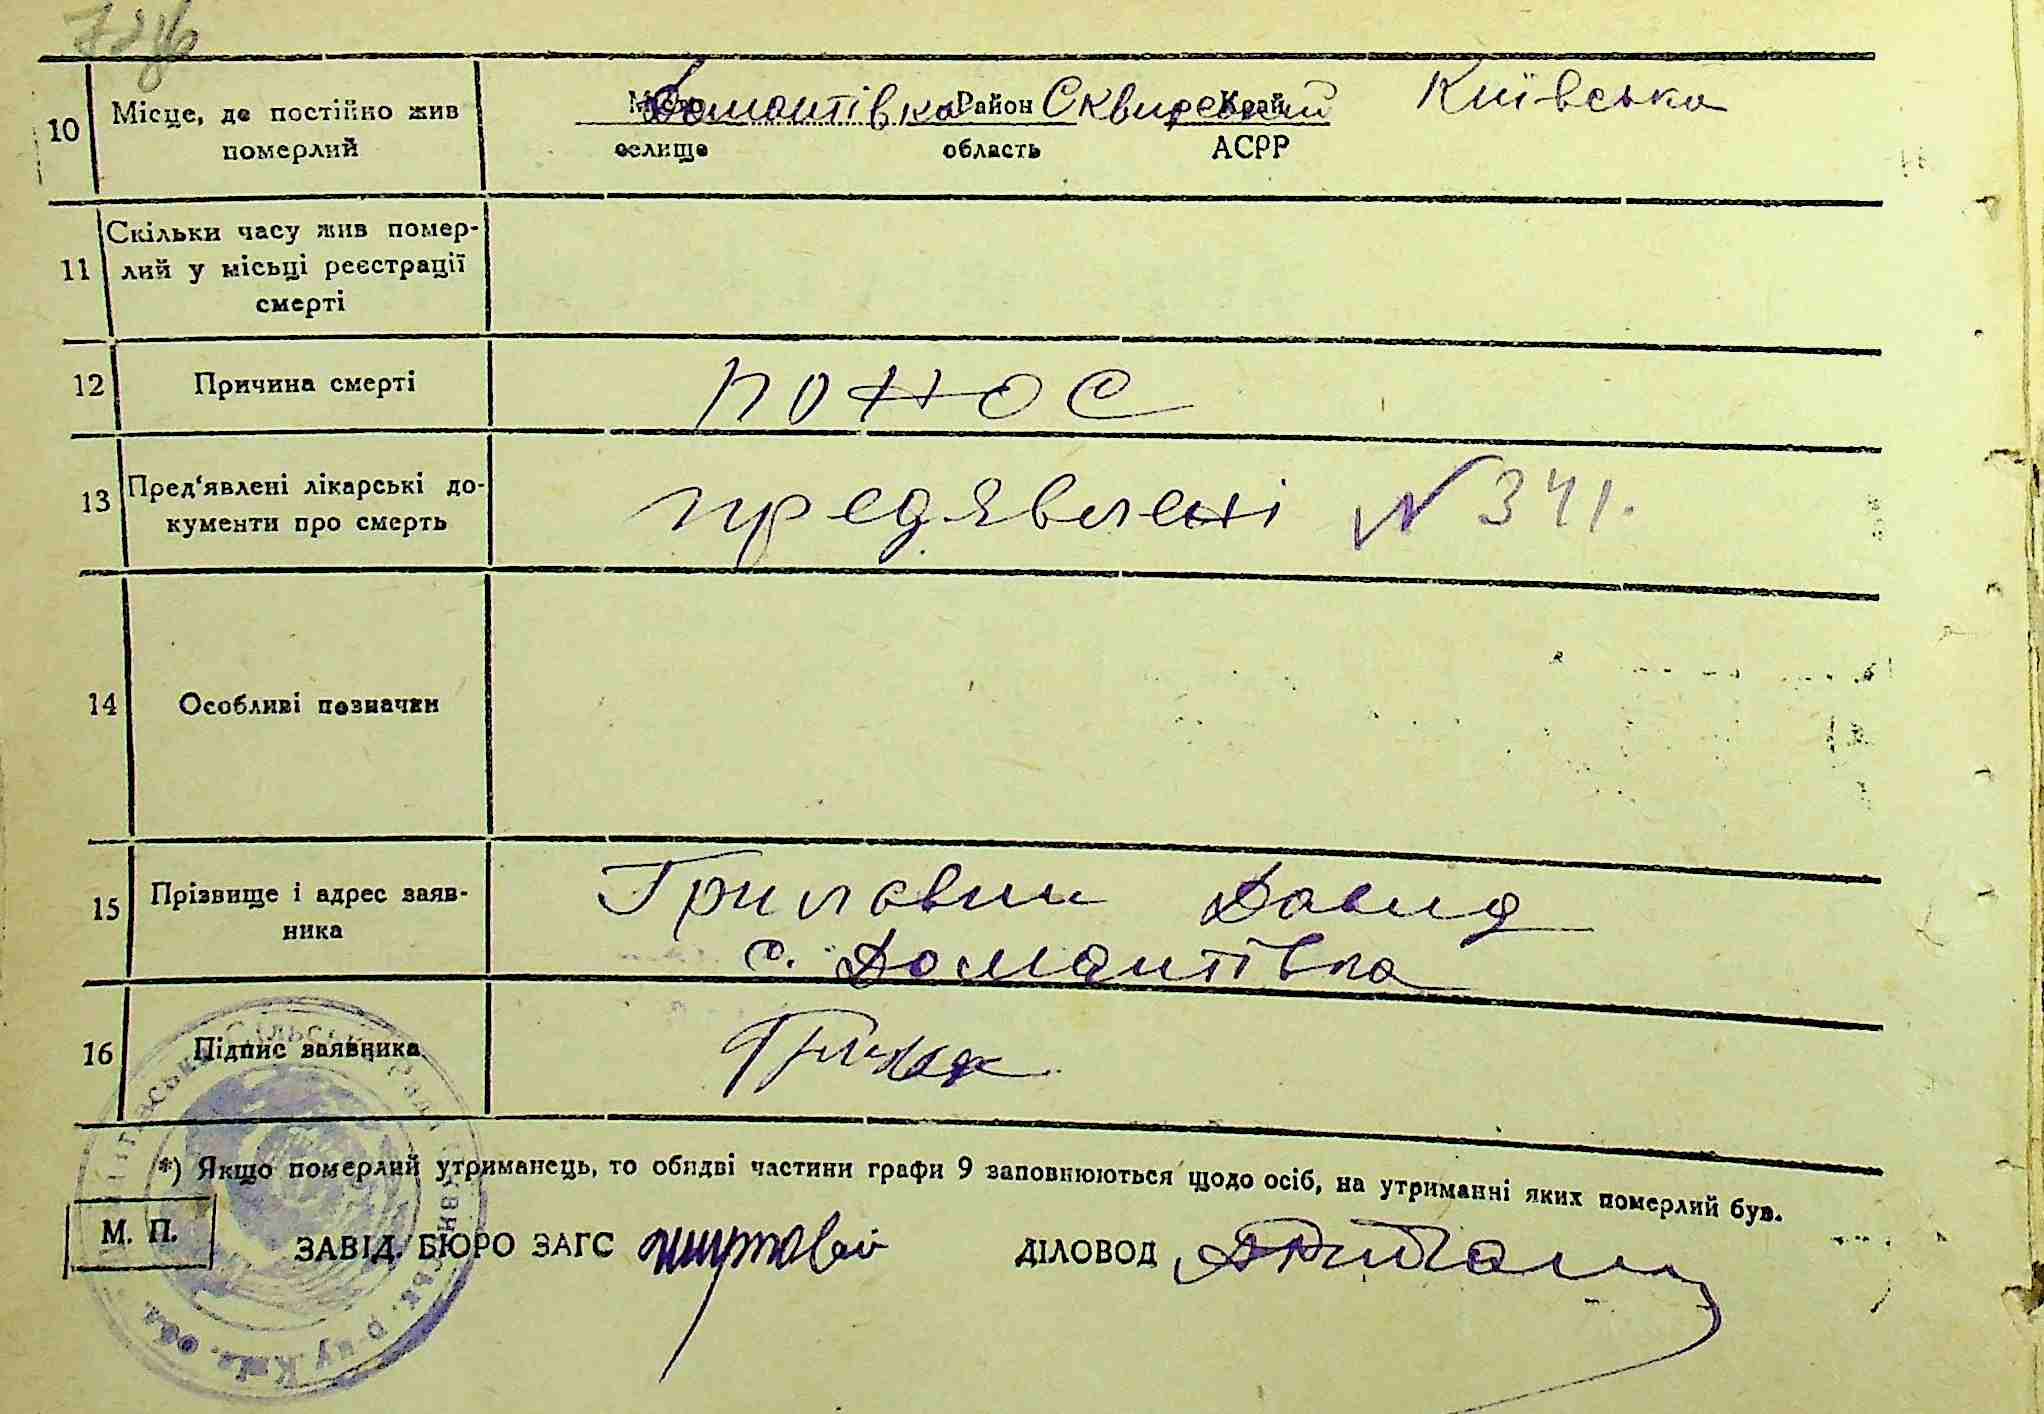 728
10 Місце, де постійно жив Місто Домантівка Район Сквирський Край Київська
померлий селище область АСРР
11 Скільки часу жив помер-
лий у місьці реєстрації
смерті
12 Причина смерті понос
13 Пред'явлені лікарські до- предявлені № 341.
кументи про смерть
14 Особливі позначки
15 Прізвище і адрес заяв- Давид
ника с. Домантівка
16 Підпис заявника
*) Якщо померлий утриманець, то обидві частини графи 9 заповнюються щодо осіб, на утриманні яких померлий був.
М. П. ЗАВІД. БЮРО ЗАГС ДІЛОВОД
Сільська Рада Сквирськ. р-ну Київ. обл.